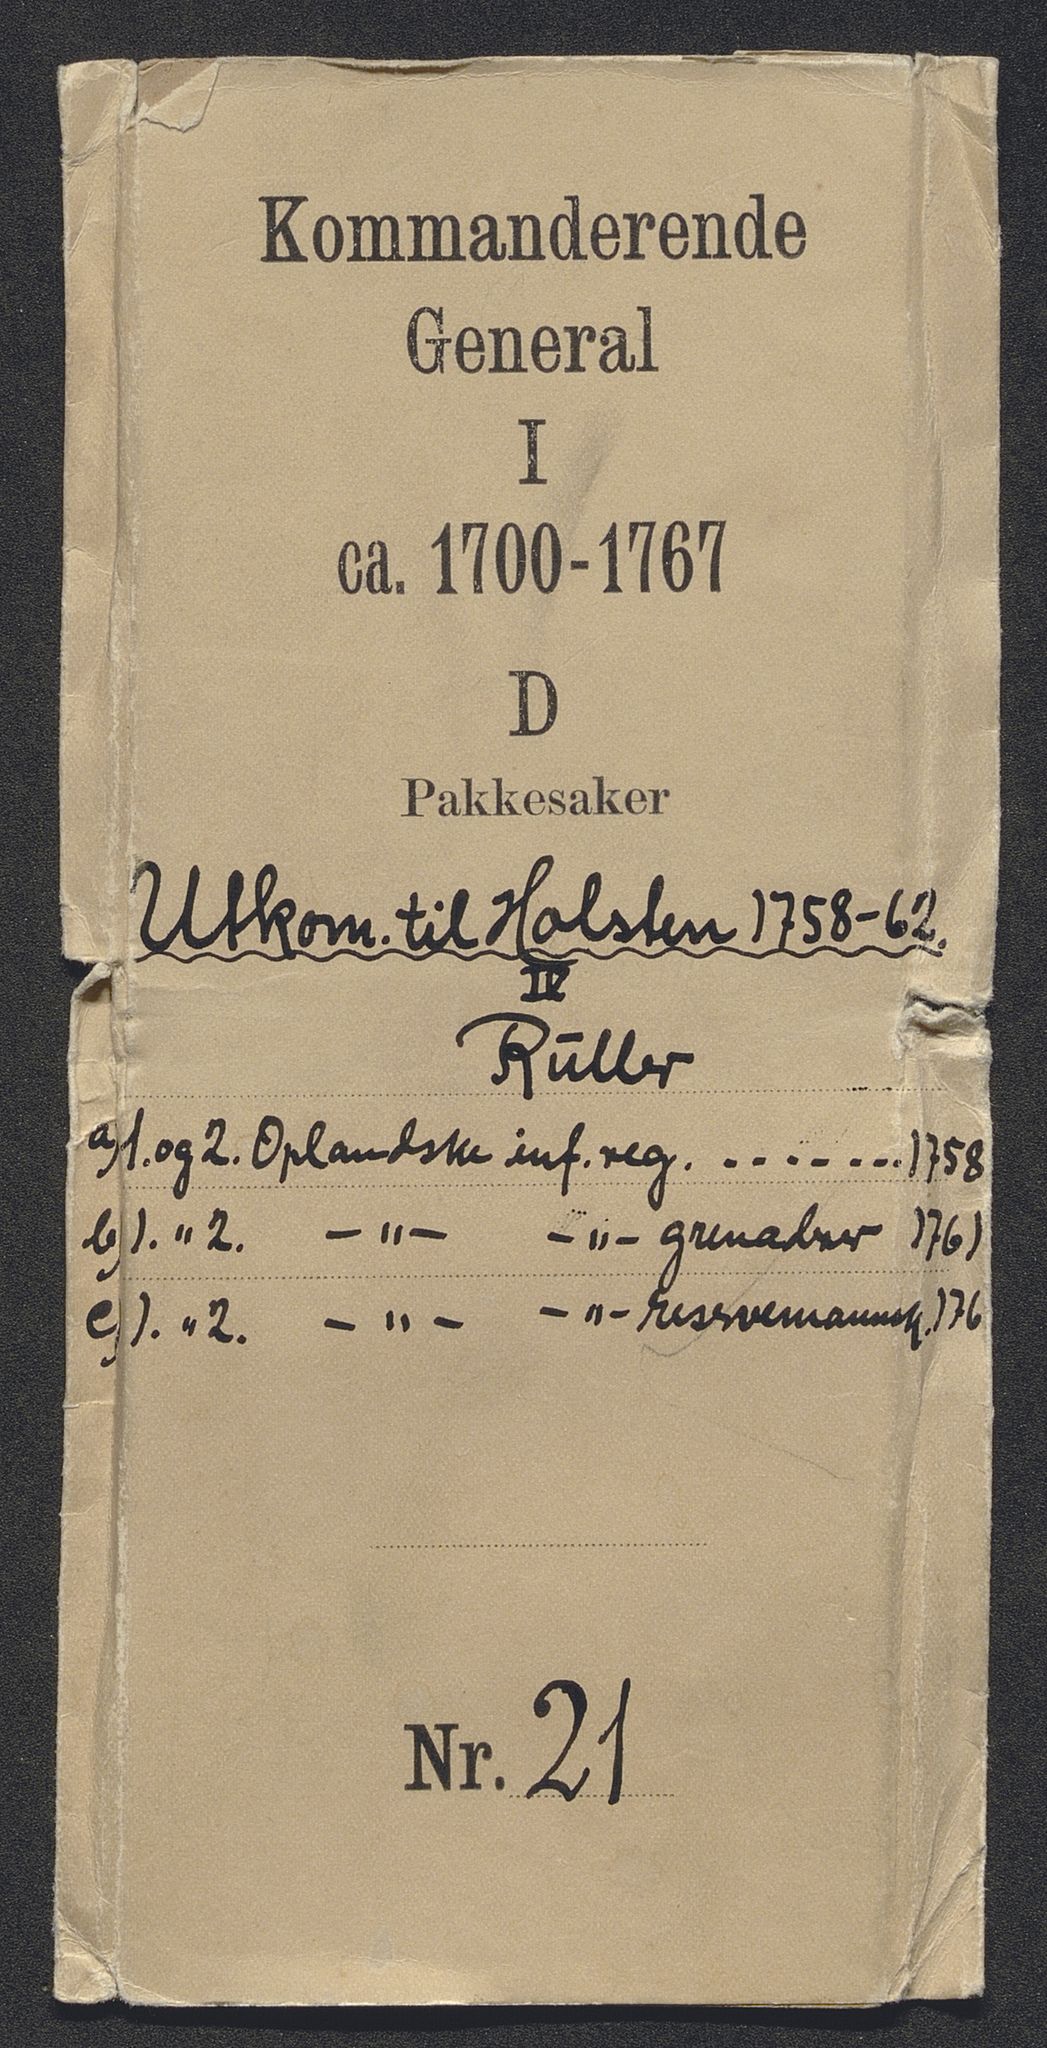 Kommanderende
General
I
ca. 1700-1767
D
Pakkesaker
Utkom. til Holsten 1758-62.
IV
Rūller
a) 1. og 2. Oplandske inf. reg. ........ 1758
b) 1. " 2. - " - - " - grenaderer 1761
c) 1. " 2. - " - - " - reservemannsk. 176
Nr. 21